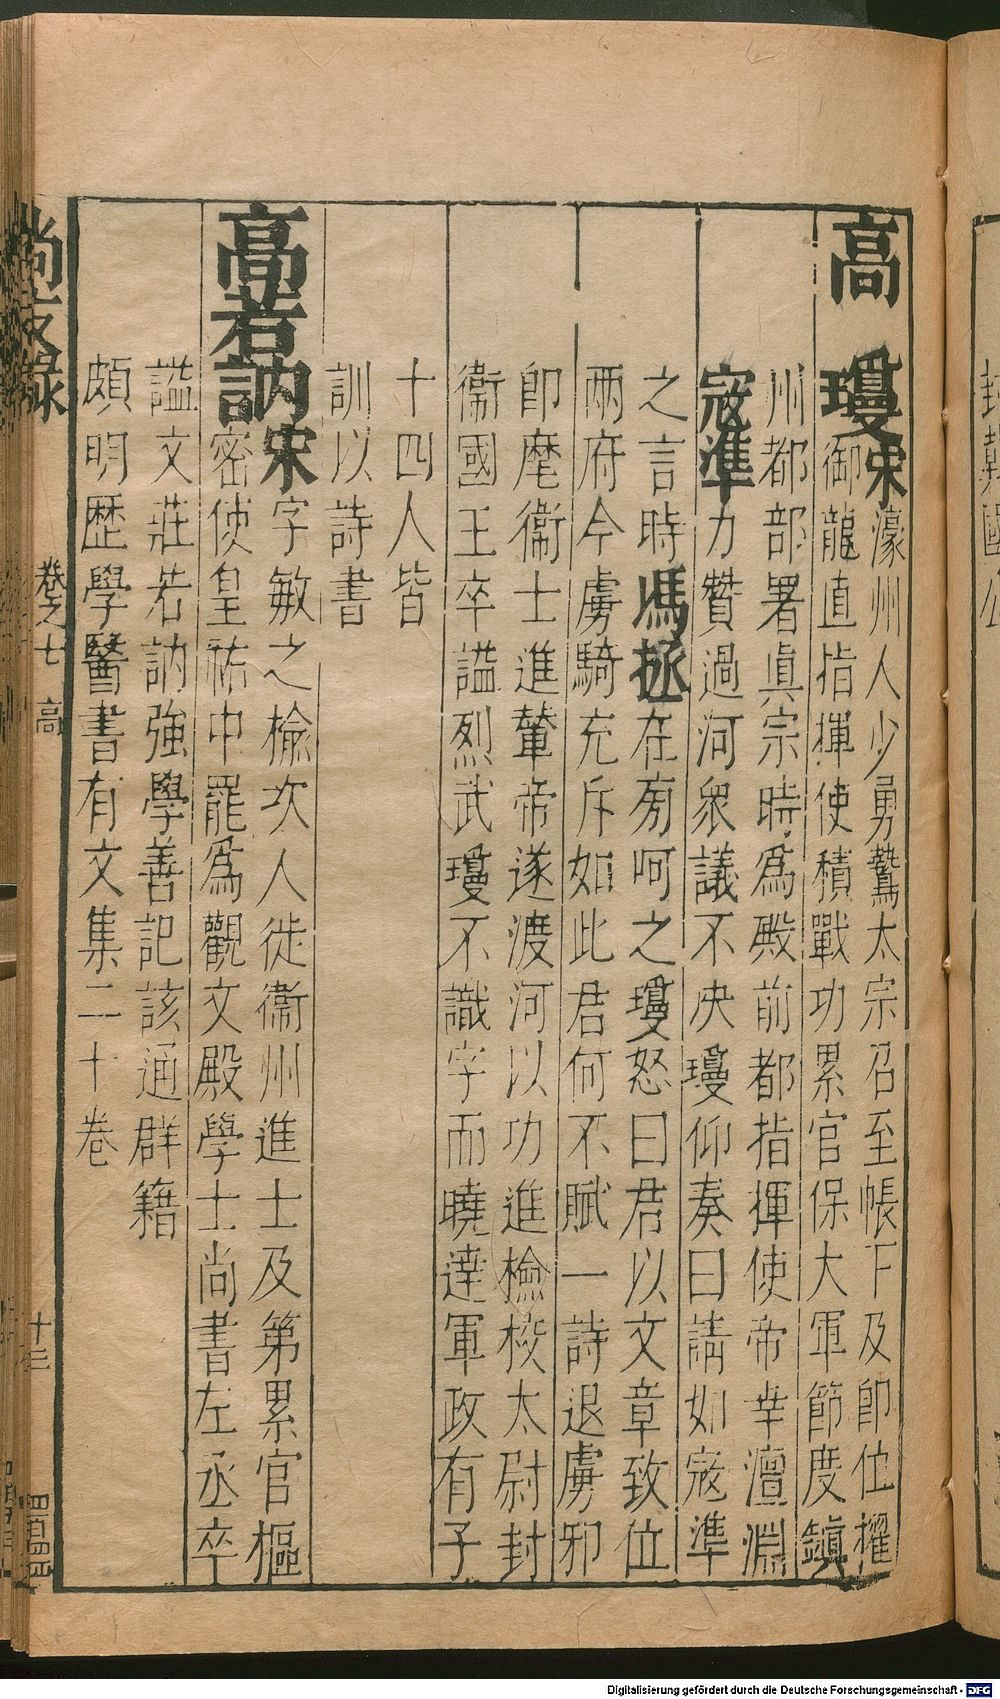 高瓊宋濠州人少勇鷙太宗召至帳下及卽位擢
御龍直指揮使積戰功累官保大軍節度鎮
州都部署眞宗時爲殿前都指揮使帝幸澶淵
寇準力贊過河衆議不决瓊仰奏曰請如寇準
之言時馮拯在旁呵之瓊怒曰君以文章致位
兩府今虜騎充斥如此君何不賦一詩退虜邪
卽麾衞士進輦帝遂渡河以功進檢校太尉封
衞國王卒謚烈武瓊不識字而曉達軍政有子
十四人皆
訓以詩書
高若訥宋字敏之榆次人徙衞州進士及第累官樞
密使皇祐中罷爲觀文殿學士尚書左丞卒
謚文莊若訥強學善記該通群籍
頗明歷學醫書有文集二十卷
尚友錄 卷之七 高 十三
封冀國公
Digitalisierung gefördert durch die Deutsche Forschungsgemeinschaft - DFG